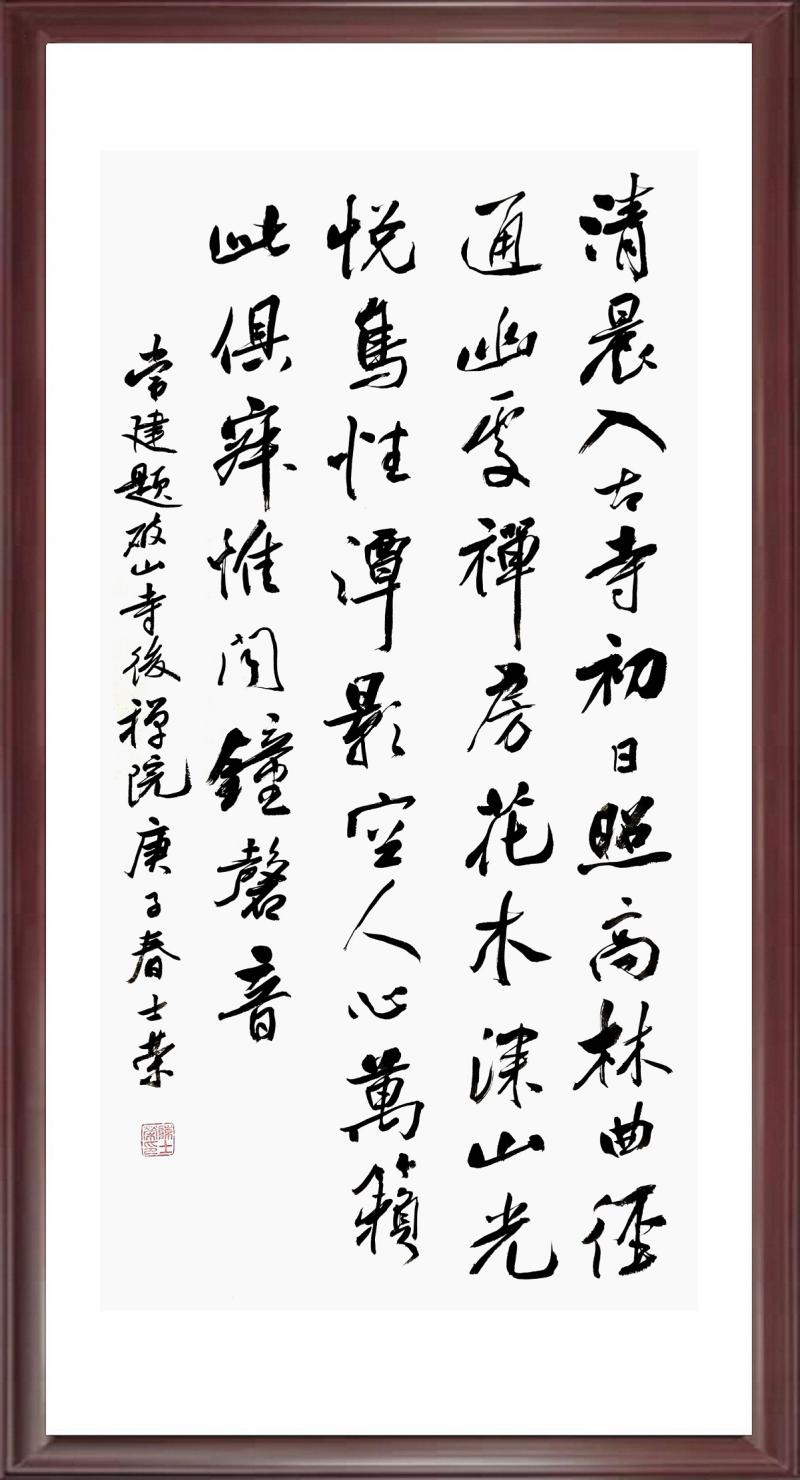 清晨入古寺初日照高林曲徑
通幽處禪房花木深山光
悦鳥性潭影空人心萬籟
此俱寂惟聞鐘磬音
常建題破山寺後禪院庚子春士榮
陳士榮印